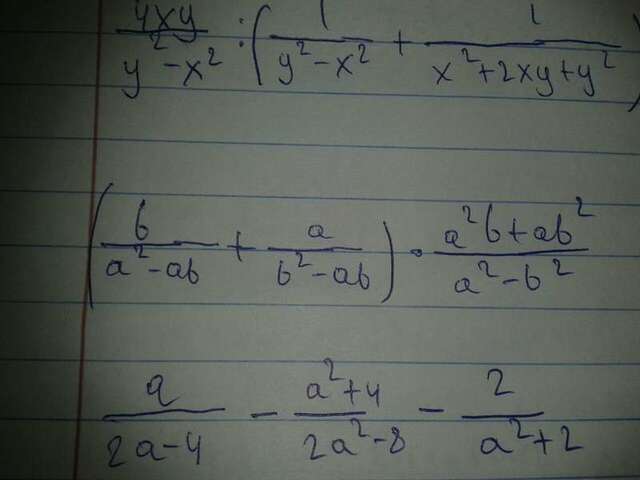 4xy/(y²-x²) : (1/(y²-x²) + 1/(x²+2xy+y²))
(b/(a²-ab) + a/(b²-ab)) · (a²b+ab²)/(a²-b²)
a/(2a-4) - (a²+4)/(2a²-8) - 2/(a²+2)